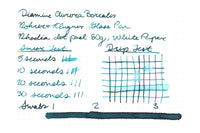 Diamine Aurora Borealis
Rohrer & Klingner Glass Pen
Rhodia dot pad 80g, White Paper
Smear Test Drip Test
5 seconds
10 seconds
20 seconds
30 seconds
Swabs 1 2 3